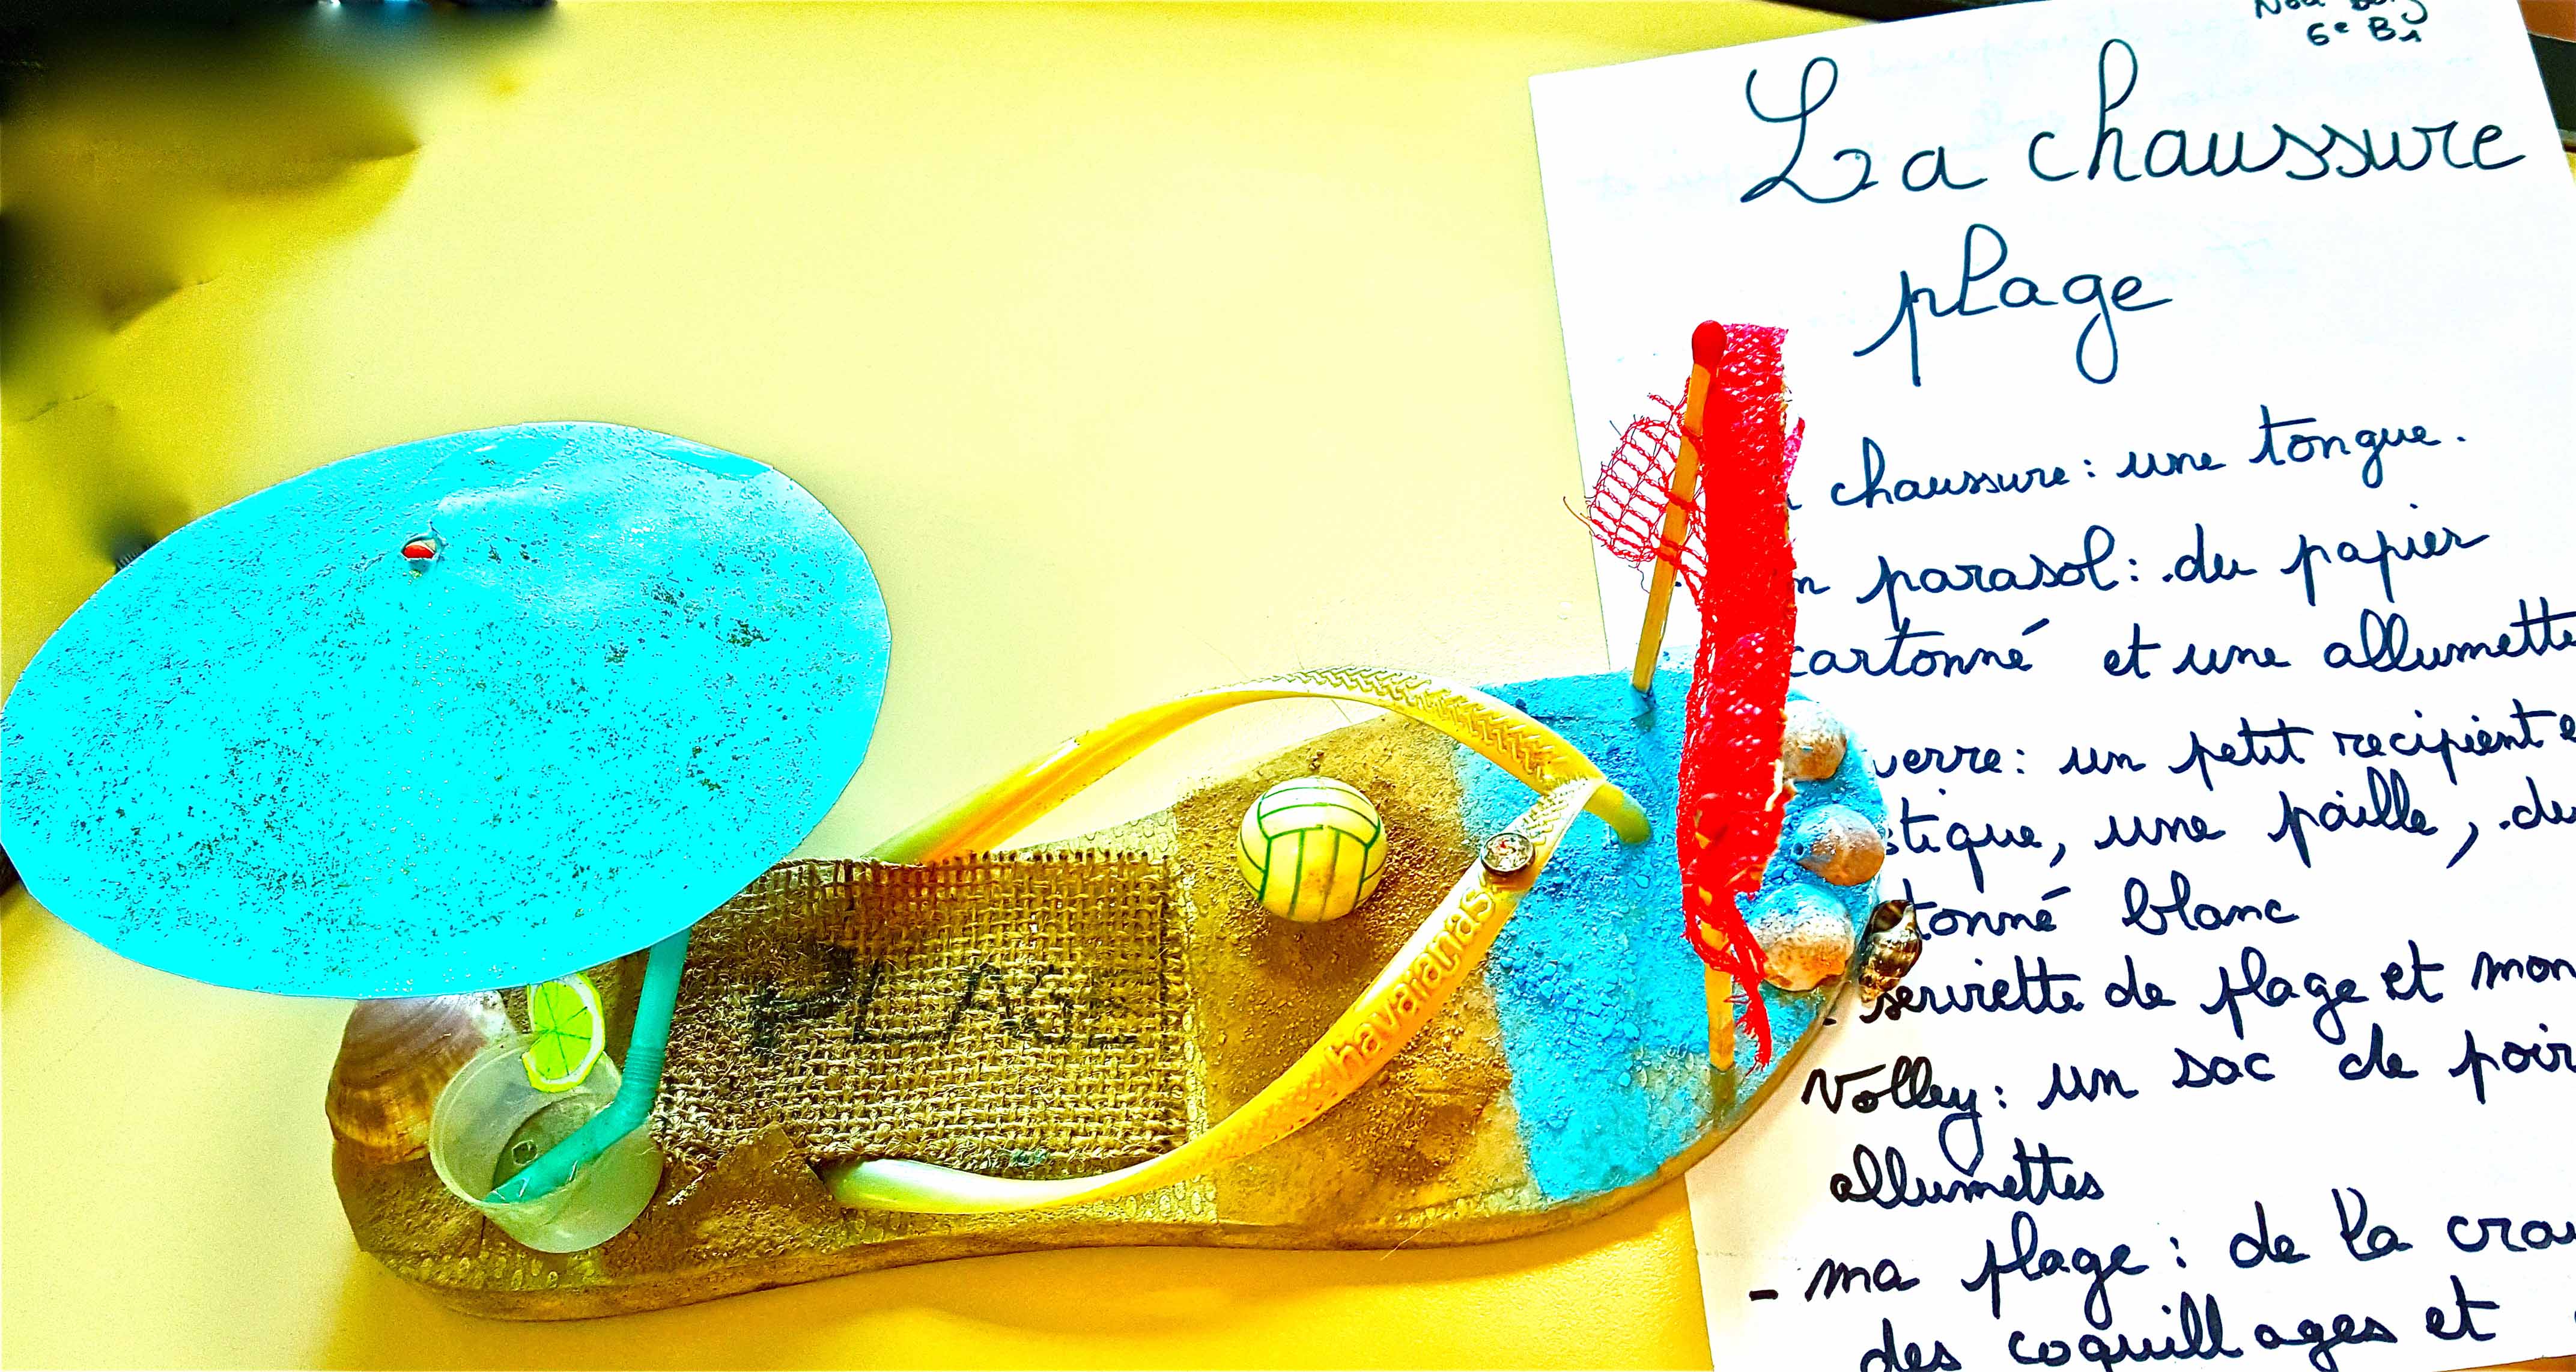 6e B1
La chaussure
plage
chaussure : une tongue.
parasol : du papier
cartonné et une allumette
verre : un petit recipient
une paille, du
blanc
serviette de plage et mon
Volley : un sac de
allumettes
- ma plage : de la
des coquillages et
PLAGE
havaianas